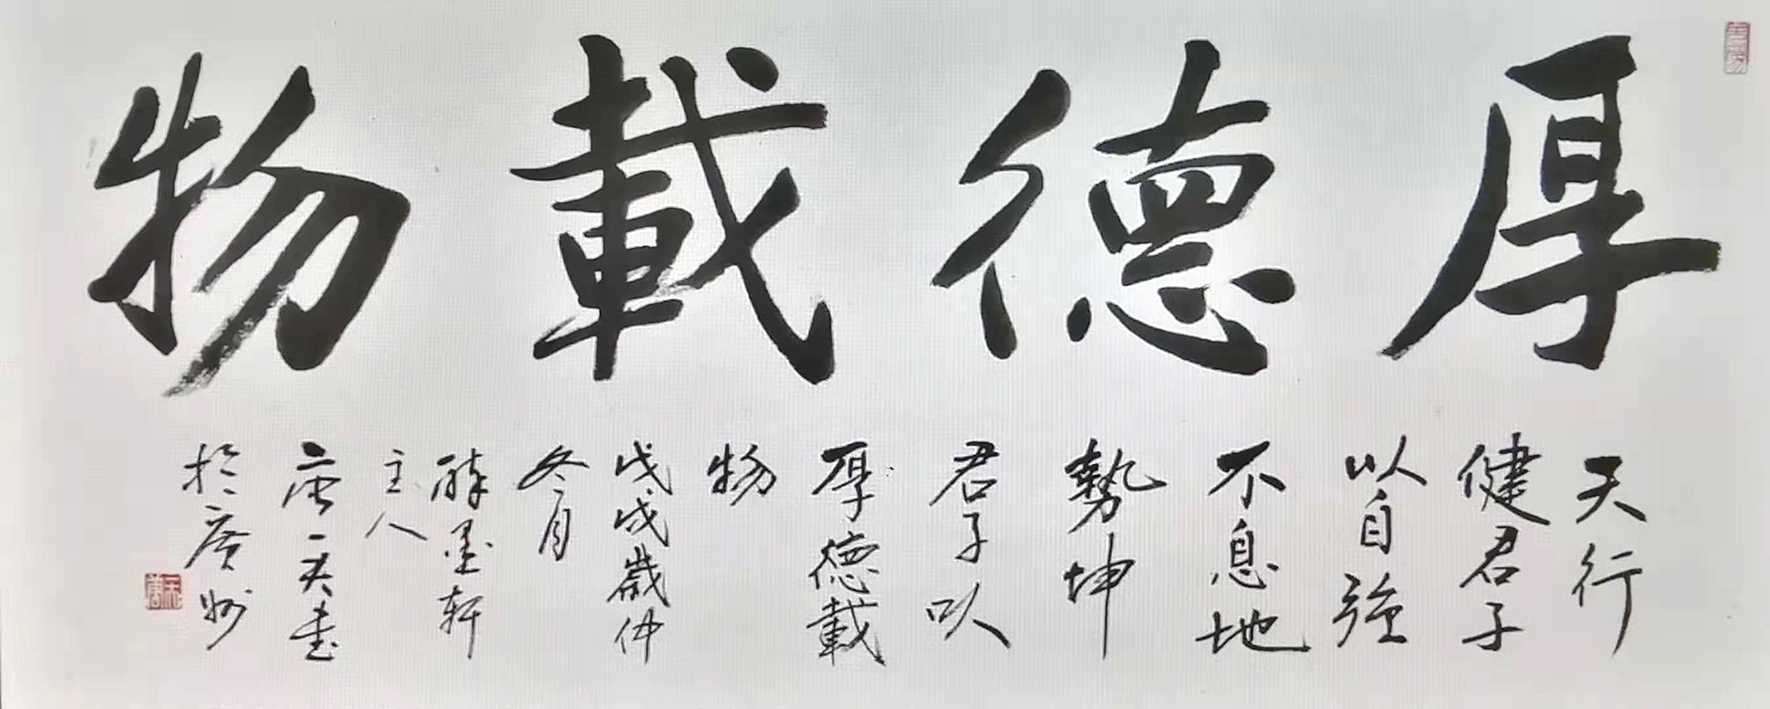 厚德載物
天行
健君子
以自強
不息地
勢坤
君子以
厚德載
物
戊戌歲仲
冬月
醉墨軒
主人
唐一夫書
於廣州